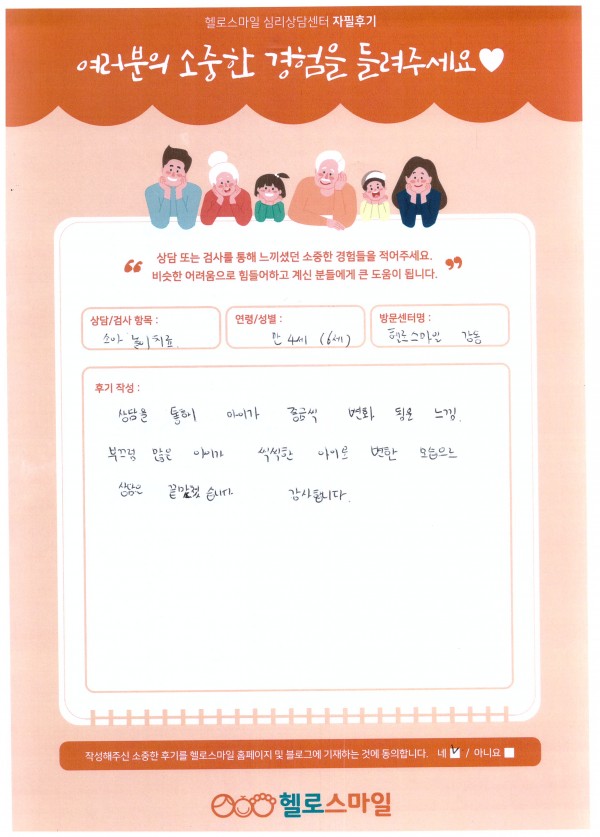 헬로스마일 심리상담센터 자필후기
여러분의 소중한 경험을 들려주세요♥
“ 상담 또는 검사를 통해 느끼셨던 소중한 경험들을 적어주세요.
비슷한 어려움으로 힘들어하고 계신 분들에게 큰 도움이 됩니다. ”
상담/검사 항목 :
소아 놀이치료.
연령/성별 :
만 4세 (6세)
방문센터명 :
헬로스마일 강동
후기 작성 :
상담을 통해 아이가 조금씩 변화 됨을 느낌.
부끄럼 많은 아이가 씩씩한 아이로 변한 모습으로
상담을 끝맞쳤습니다. 감사합니다.
작성해주신 소중한 후기를 헬로스마일 홈페이지 및 블로그에 기재하는 것에 동의합니다. 네 / 아니요
헬로스마일